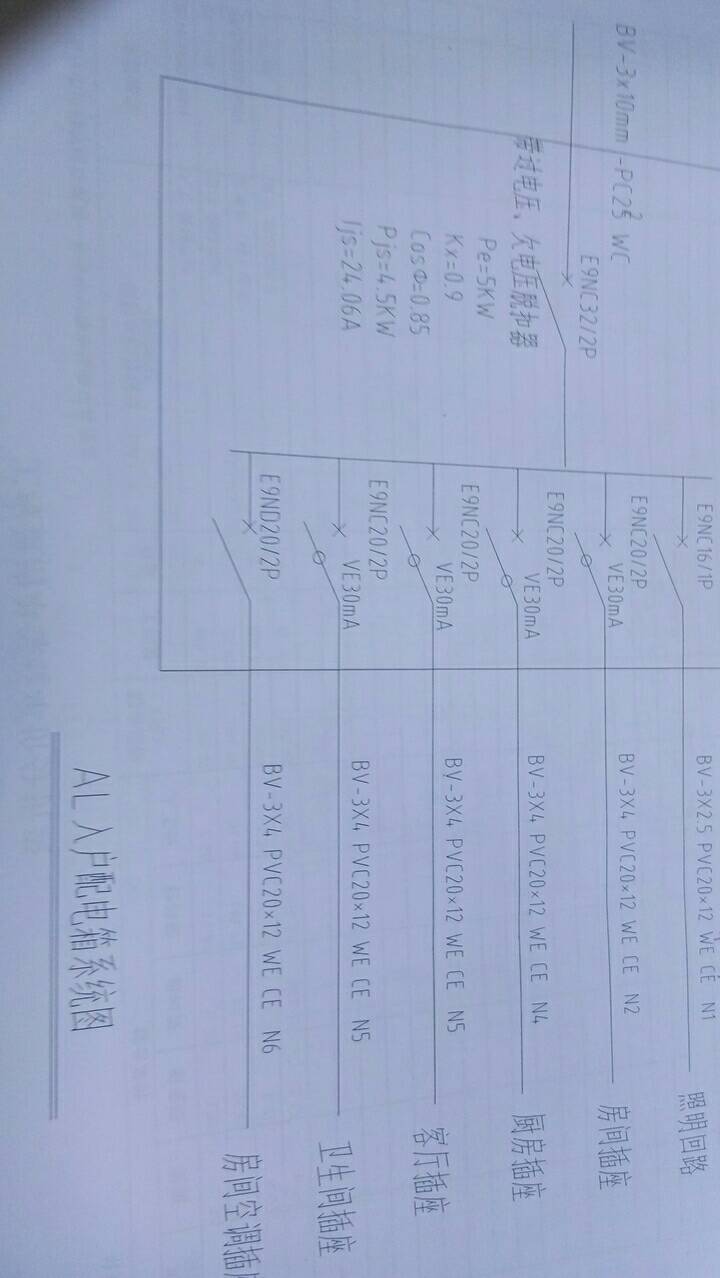 BV-3x10mm²-PC25 WC
E9NC32/2P
带过电压、欠电压脱扣器
Pe=5KW
Kx=0.9
CosΦ=0.85
Pjs=4.5KW
Ijs=24.06A
E9NC16/1P BV-3X2.5 PVC20×12 WE CE N1 照明回路
E9NC20/2P VE30mA BV-3X4 PVC20×12 WE CE N2 房间插座
E9NC20/2P VE30mA BV-3X4 PVC20×12 WE CE N4 厨房插座
E9NC20/2P VE30mA BV-3X4 PVC20×12 WE CE N5 客厅插座
E9NC20/2P VE30mA BV-3X4 PVC20×12 WE CE N5 卫生间插座
E9ND20/2P BV-3X4 PVC20×12 WE CE N6 房间空调插
AL入户配电箱系统图